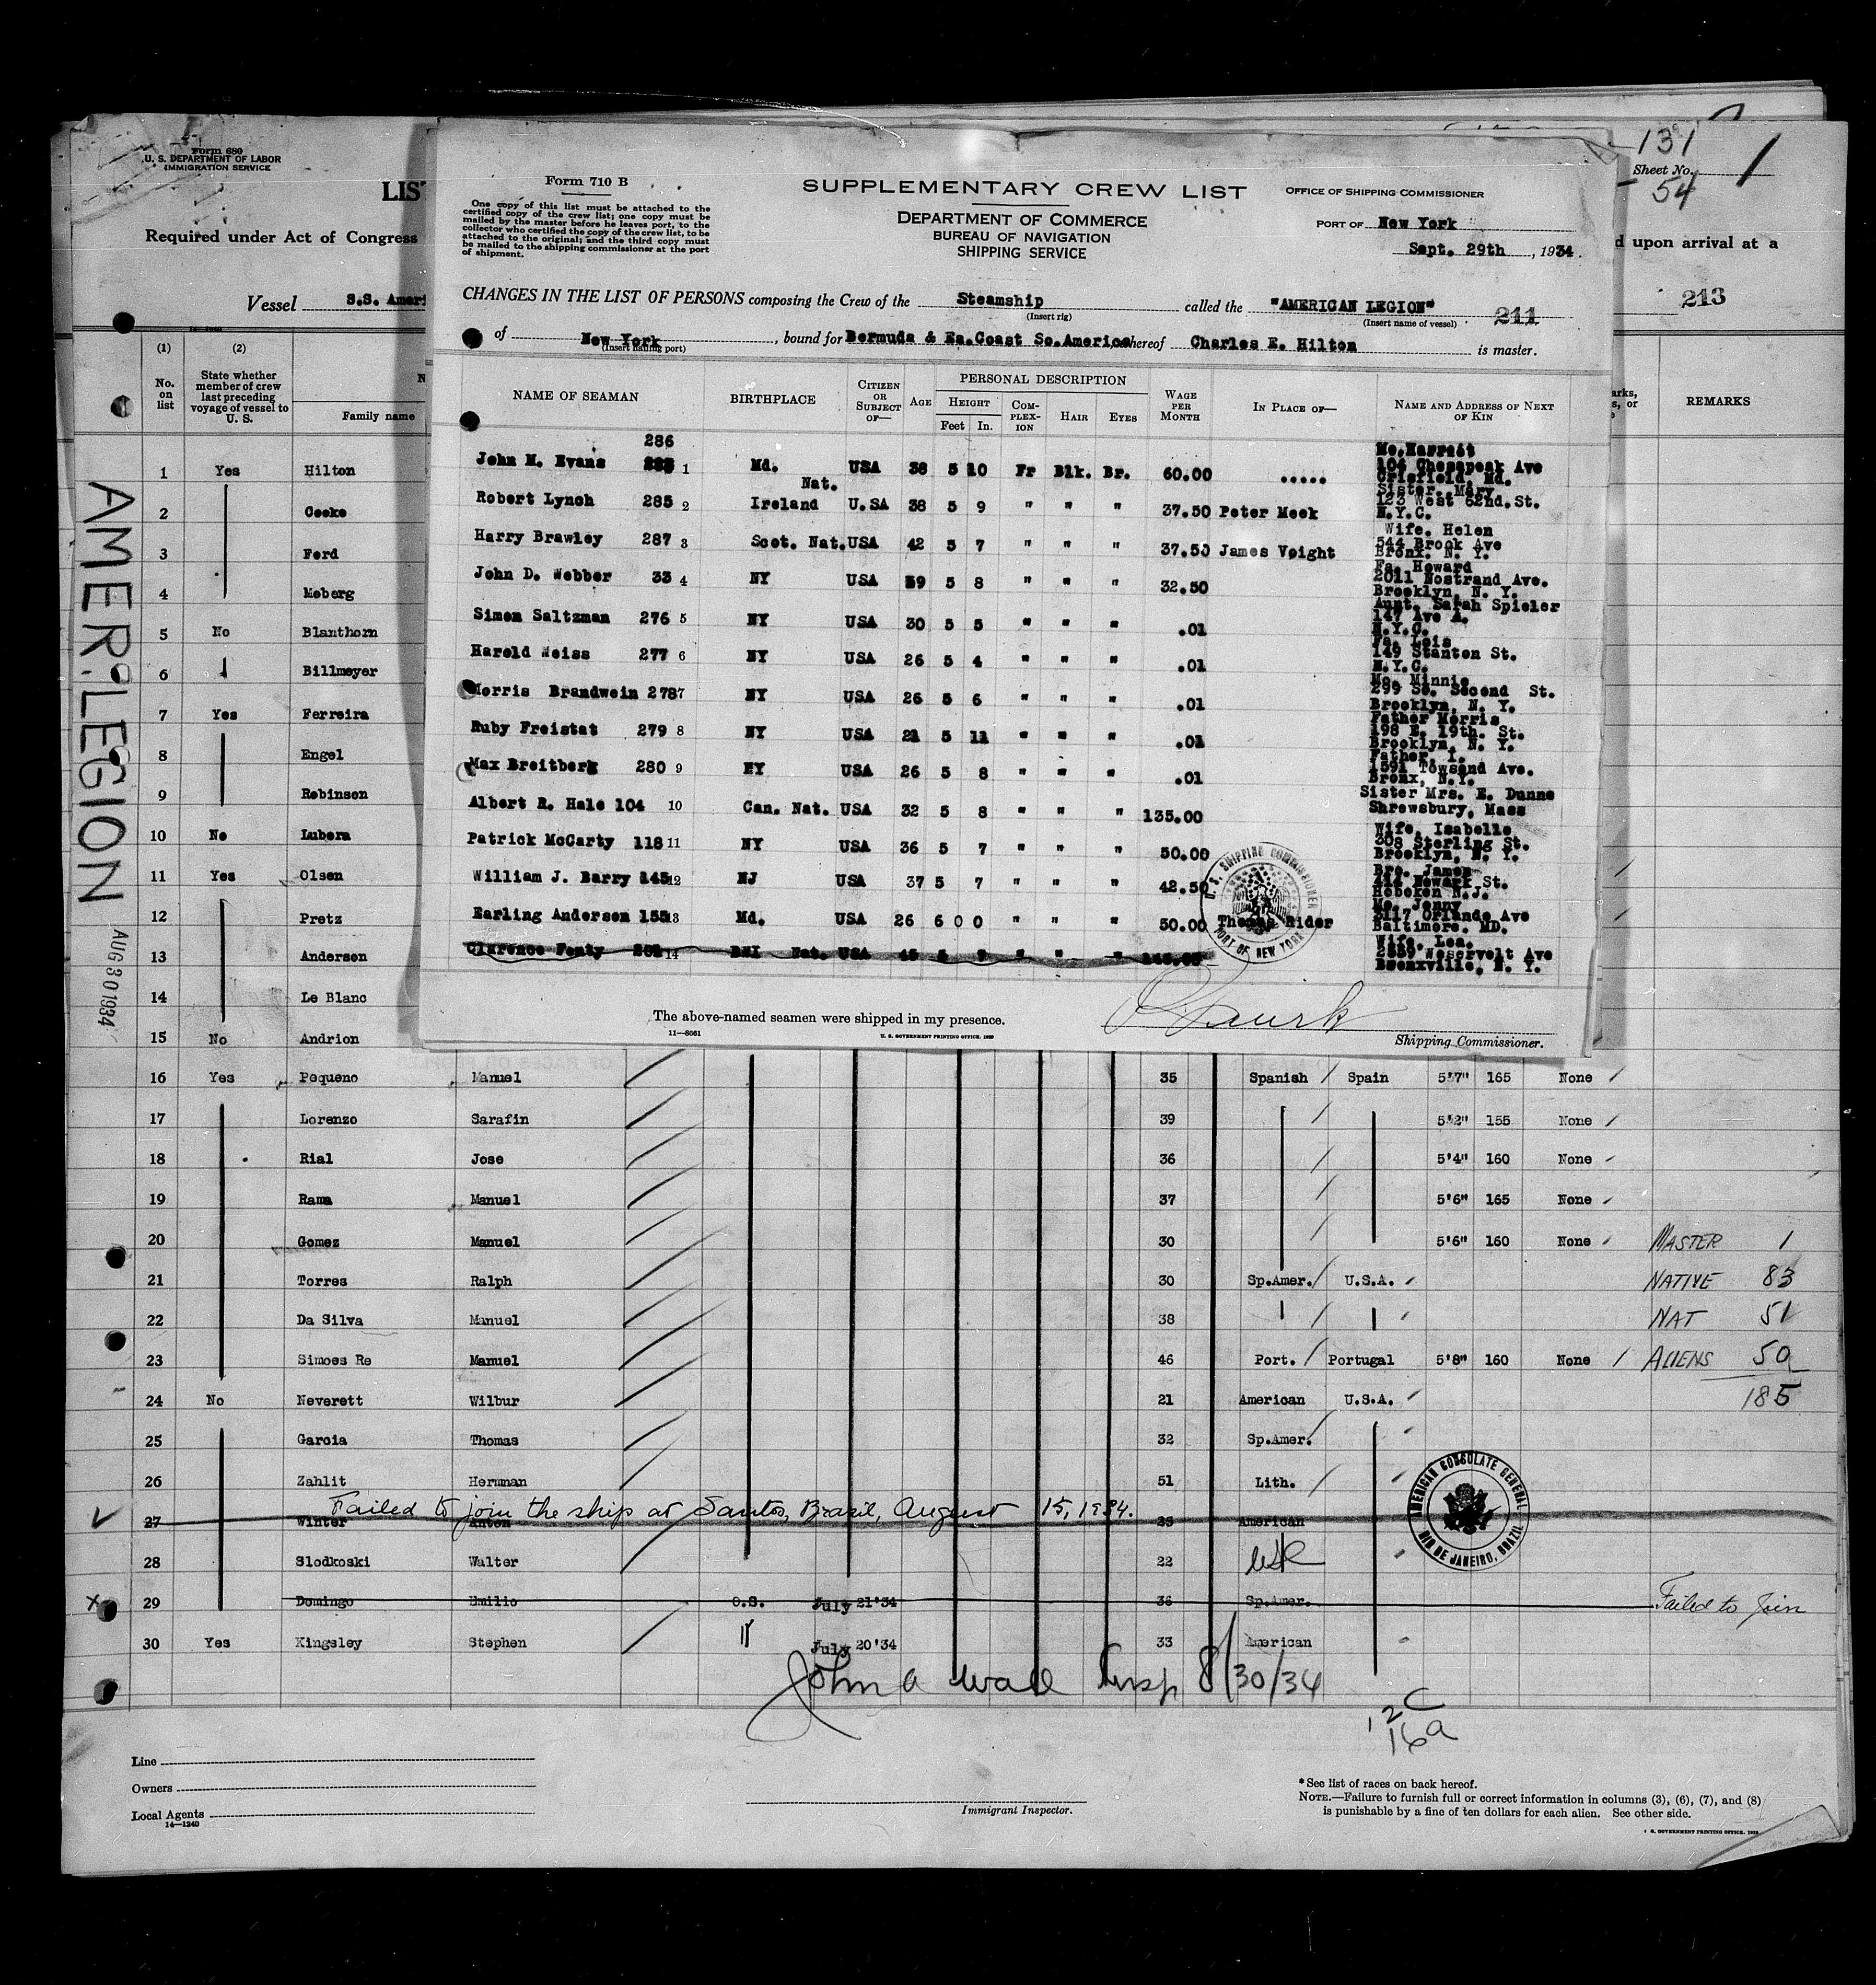 Form 680
U. S. DEPARTMENT OF LABOR
IMMIGRATION SERVICE
LIS
Required under Act of Congress
Vessel S.S. Ameri
131
Sheet No. 1
54
d upon arrival at a
213
Form 710 B
One copy of this list must be attached to the
certified copy of the crew list; one copy must be
mailed by the master before he leaves port, to the
collector who certified the copy of the crew list, to be
attached to the original; and the third copy must
be mailed to the shipping commissioner at the port
of shipment.
SUPPLEMENTARY CREW LIST
DEPARTMENT OF COMMERCE
BUREAU OF NAVIGATION
SHIPPING SERVICE
OFFICE OF SHIPPING COMMISSIONER
PORT OF New York
Sept. 29th , 1934.
CHANGES IN THE LIST OF PERSONS composing the Crew of the Steamship called the "AMERICAN LEGION" 211
(Insert rig) (Insert name of vessel)
of New York, bound for Bermuda & Ea.Coast So.America whereof Charles E. Hilton is master.
(Insert hailing port)
NAME OF SEAMAN BIRTHPLACE CITIZEN OR SUBJECT OF— AGE PERSONAL DESCRIPTION HEIGHT Feet In. COMPLEXION HAIR EYES WAGE PER MONTH IN PLACE OF— NAME AND ADDRESS OF NEXT OF KIN
286
John M. Evans 1 Md. USA 38 5 10 Fr Blk. Br. 60.00 ..... Mo.Harriet
104 Chesapeak Ave
Crisfield, Md.
Robert Lynch 285 2 Nat. Ireland U.SA 38 5 9 " " " 37.50 Peter Meek Sister. Mary
123 West 62nd.St.
N.Y.C.
Harry Brawley 287 3 Scot. Nat. USA 42 5 7 " " " 37.50 James Voight Wife. Helen
544 Brook Ave
Bronx. N. Y.
John D. Webber 33 4 NY USA 39 5 8 " " " 32.50 Fa. Howard
2011 Nostrand Ave.
Brooklyn, N. Y.
Simon Saltzman 276 5 NY USA 30 5 5 " " " .01 Aunt. Sarah Spieler
147 Ave A.
N.Y.C.
Harold Weiss 277 6 NY USA 26 5 4 " " " .01 Fa. Lois
149 Stanton St.
N.Y.C.
Morris Brandwein 278 7 NY USA 26 5 6 " " " .01 Mo. Minnie
299 So. Second St.
Brooklyn, N. Y.
Ruby Freistat 279 8 NY USA 21 5 11 " " " .01 Father Morris
198 E. 19th. St.
Brooklyn, N. Y.
Max Breitberg 280 9 NY USA 26 5 8 " " " .01 Father, I.
1591 Towsend Ave.
Bronx, N.Y.
Albert R. Hale 104 10 Can. Nat. USA 32 5 8 " " " 135.00 Sister Mrs. E. Dunne
Shrewsbury, Mass
Patrick McCarty 118 11 NY USA 36 5 7 " " " 50.00 Wife, Isabelle
308 Sterling St.
Brooklyn, N. Y.
William J. Barry 145 12 NJ USA 37 5 7 " " " 42.50 Bro. James
Newark St.
Hoboken N.J.
Earling Andersen 155 13 Md. USA 26 6 0 0 " " " 50.00 Thomas Rider Mo. Jenny
3117 Orlando Ave
Baltimore. MD.
Clarence Fenty 14 BWI Nat. USA 45 " " " Wife. Lea.
Ave
Bronxville, N. Y.
U. S. SHIPPING COMMISSIONER
PORT OF NEW YORK
The above-named seamen were shipped in my presence.
Shipping Commissioner.
11—8051 U. S. GOVERNMENT PRINTING OFFICE
(1) No. on list
(2) State whether member of crew last preceding voyage of vessel to U. S.
Family name
REMARKS
AMER. LEGION
AUG 30 1934
1 Yes Hilton
2 Cooke
3 Ford
4 Moberg
5 No Blanthorn
6 Billmeyer
7 Yes Ferreira
8 Engel
9 Robinson
10 No Lubera
11 Yes Olsen
12 Pretz
13 Andersen
14 Le Blanc
15 No Andrion
16 Yes Pequeno Manuel 35 Spanish Spain 5'7" 165 None
17 Lorenzo Sarafin 39 5'2" 155 None
18 Rial Jose 36 5'4" 160 None
19 Rama Manuel 37 5'6" 165 None
20 Gomez Manuel 30 5'6" 160 None MASTER 1
21 Torres Ralph 30 Sp.Amer. U.S.A. NATIVE 83
22 Da Silva Manuel 38 NAT 51
23 Simoes Re Manuel 46 Port. Portugal 5'8" 160 None ALIENS 50
24 No Neverett Wilbur 21 American U.S.A. 185
25 Garcia Thomas 32 Sp.Amer.
26 Zahlit Herman 51 Lith.
Failed to join the ship at Santos, Brazil, August 15, 1934.
27 Winter Anton 25 American
AMERICAN CONSULATE GENERAL
RIO DE JANEIRO, BRAZIL
28 Slodkoski Walter 22 USA
29 Domingo Emilio O.S. July 21'34 36 Sp.Amer. Failed to Join
30 Yes Kingsley Stephen July 20'34 33 American
John A Wall Insp 8/30/34
12C
16a
Line
Owners
Local Agents
14—1240
Immigrant Inspector.
*See list of races on back hereof.
NOTE.—Failure to furnish full or correct information in columns (3), (6), (7), and (8)
is punishable by a fine of ten dollars for each alien. See other side.
U. S. GOVERNMENT PRINTING OFFICE